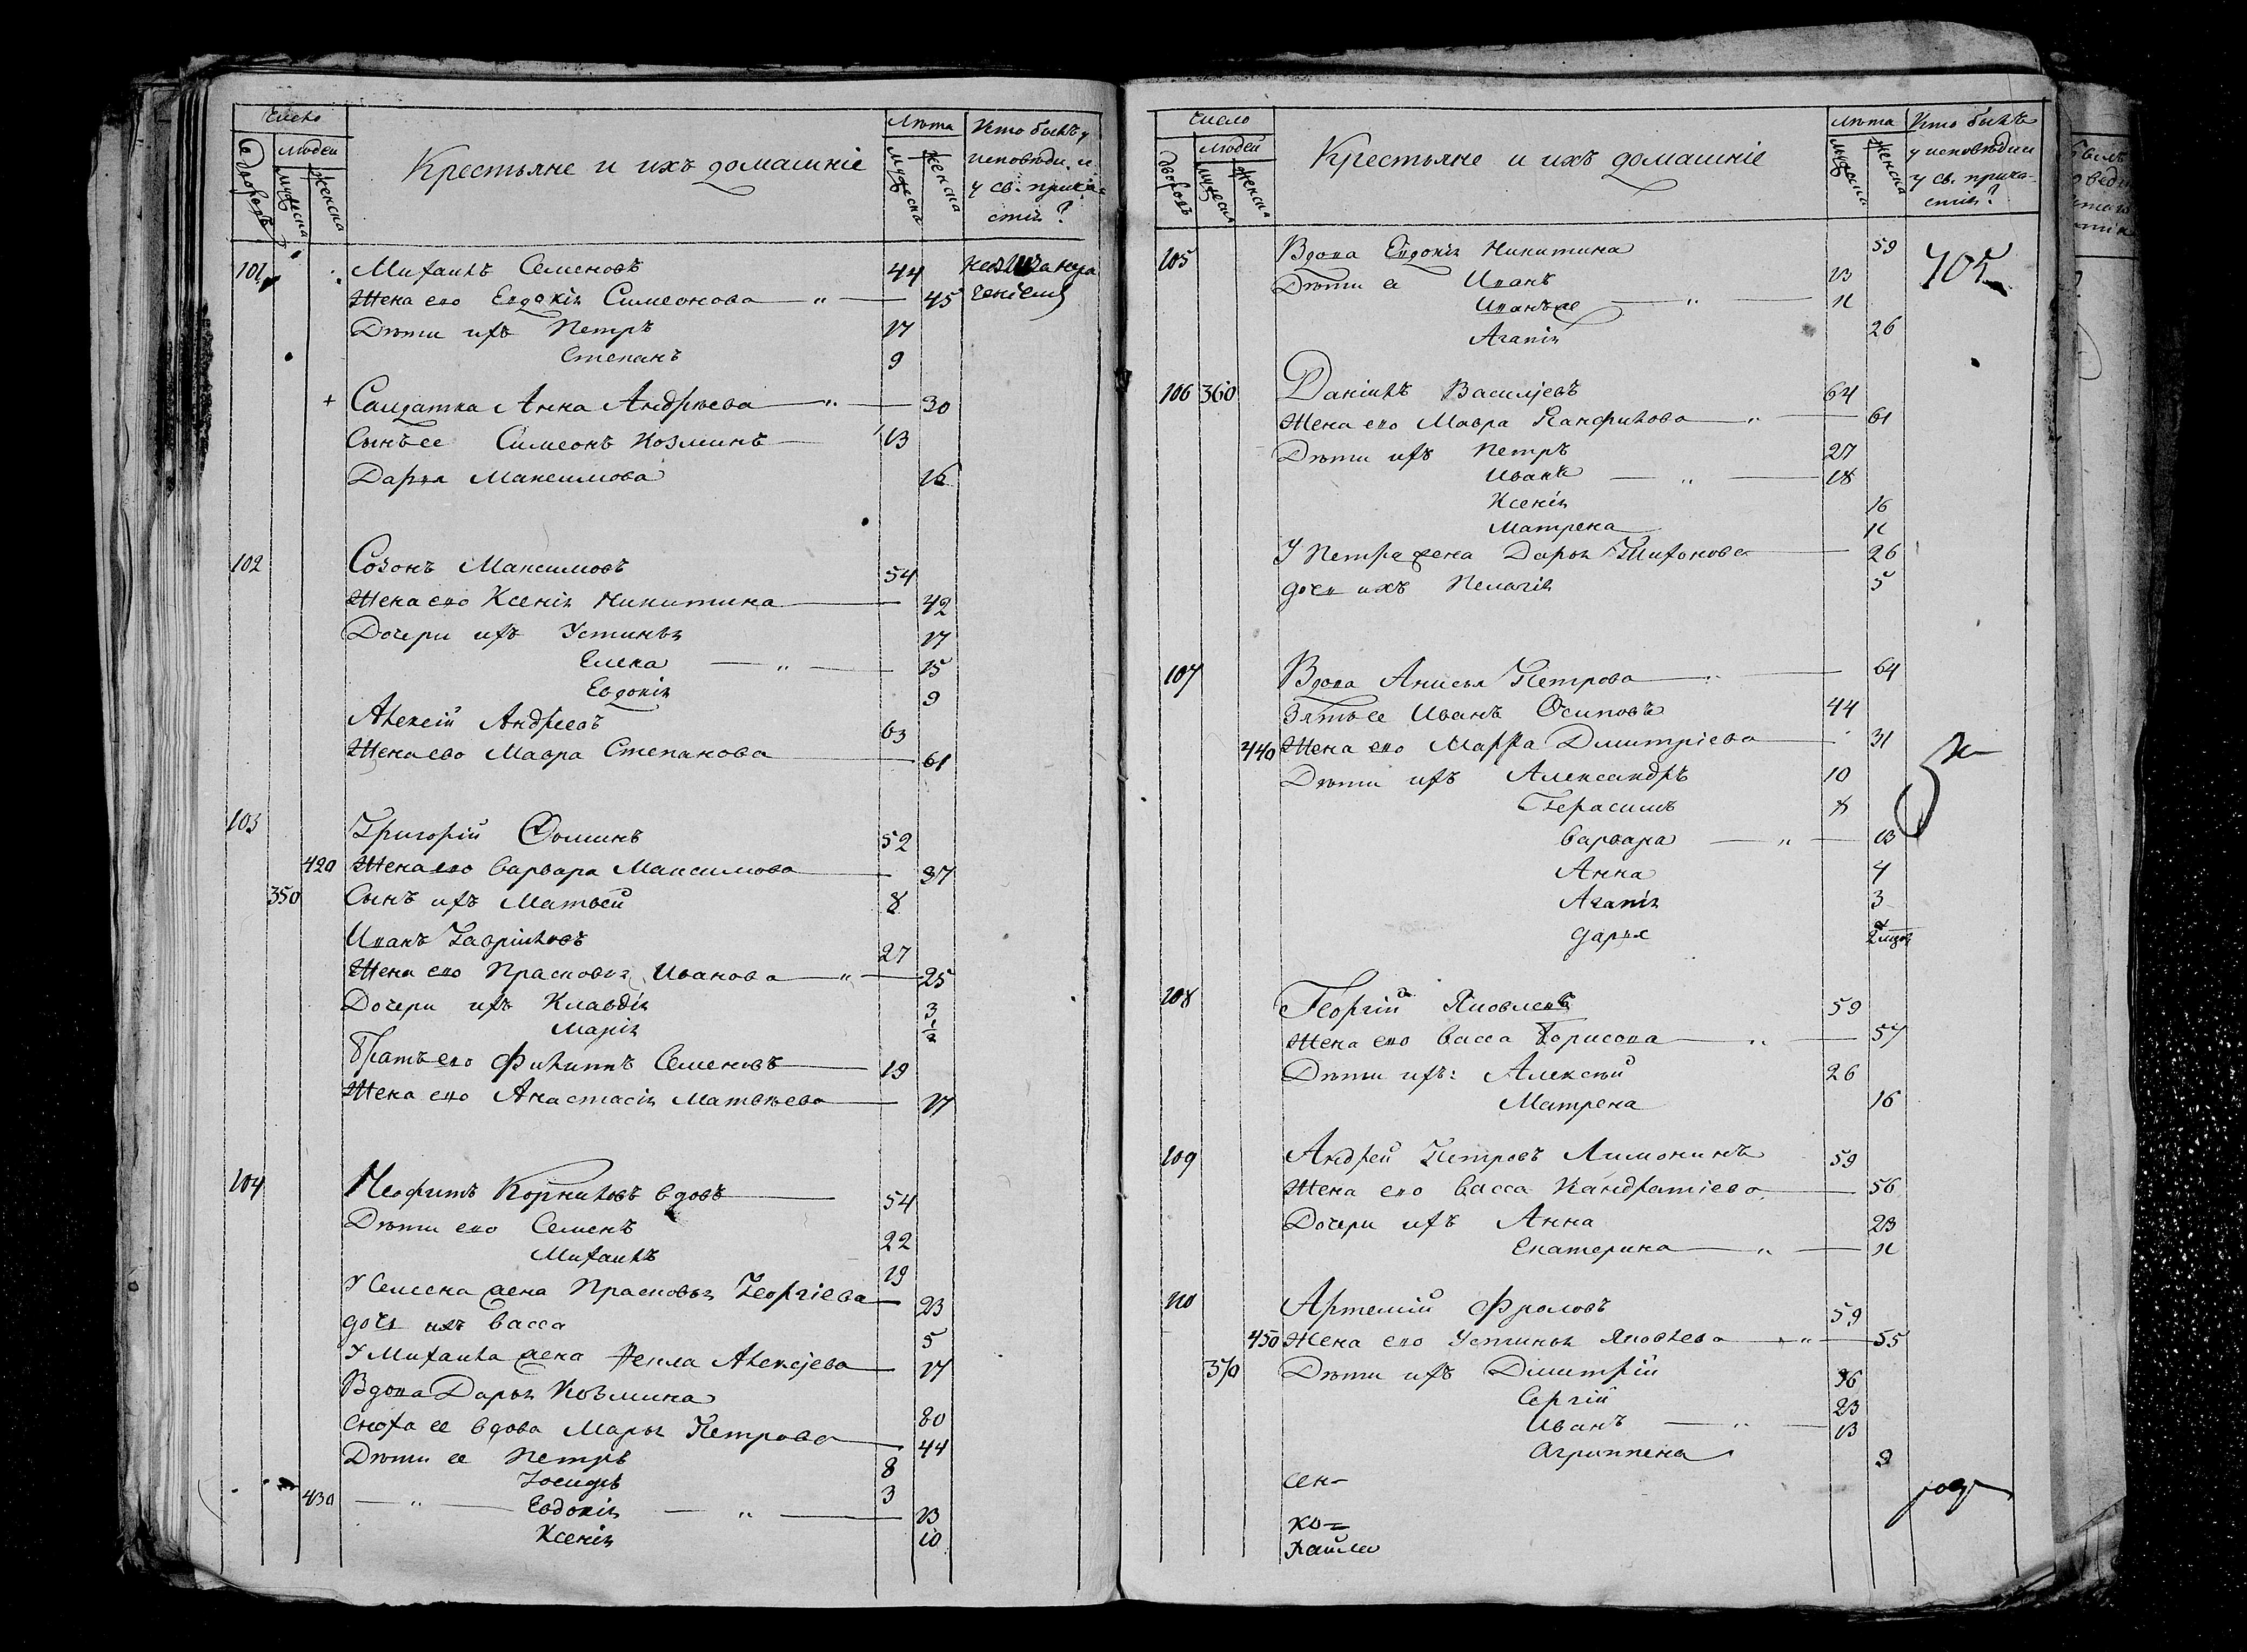 Число
Лѣта
Кто былъ у
дворовъ
людей
мужеска
женска
Крестьяне и ихъ домашніе
мужеска
женска
исповѣди и
у св. прича-
стія?
101 Михаилъ Семеновъ 44
Жена его Евдокія Симеонова 45
Дѣти ихъ Петръ 17
Степанъ 9
+ Салдатка Анна Андрѣева 30
Сынъ ее Симеонъ Козминъ 13
Дарья Максимова 16
102 Созонъ Максимовъ 54
Жена его Ксенія Никитина 42
Дочери ихъ Устинья 17
Елена 15
Евдокія 9
Алексій Андреевъ 63
Жена ево Мавра Степанова 61
103 Григорій Фоминъ 52
420 Жена его Варвара Максимова 37
350 Сынъ ихъ Матвей 8
Иванъ Гавриловъ 27
Жена его Прасковья Иванова 25
Дочери ихъ Клавдія 3
Марія 1/2
Братъ его Филиппъ Семеновъ 19
Жена его Анастасія Матвѣева 17
104 Неофитъ Корниловъ вдовъ 54
Дѣти его Семенъ 22
Михаилъ 19
У Семена жена Прасковья Георгіева 23
дочь ихъ Васса 5
У Михаила жена Фекла Алексѣева 17
Вдова Дарья Козмина 80
Сноха ее вдова Марья Петрова 44
Дѣти ее Петръ 8
Іосифъ 3
430 Евдокія 13
Ксенія 10
Число
Лѣта
Кто былъ
дворовъ
людей
мужеска
женска
Крестьяне и ихъ домашніе
мужеска
женска
у исповѣди и
у св. прича-
стія?
105 Вдова Евдокія Никитина 59
Дѣти ее Иванъ 13
Иванъ же 11
Агапія 26
106 360 Даніилъ Василіевъ 64
Жена его Мавра Панфилова 61
Дѣти ихъ Петръ 27
Иванъ 18
Ксенія 16
Матрена 11
У Петра жена Дарья Тихонова 26
дочь ихъ Пелагія 5
107 Вдова Анисья Петрова 64
Зять ее Иванъ Осиповъ 44
440 Жена его Марфа Димитріева 31
Дѣти ихъ Александръ 10
Герасимъ 8
Варвара 13
Анна 4
Агапія 3
Дарья
108 Георгій Яковлевъ 59
Жена его Васса Борисова 57
Дѣти ихъ: Алексѣй 26
Матрена 16
109 Андрей Петровъ Лимонинъ 59
Жена его Васса Кандратіева 56
Дочери ихъ Анна 23
Екатерина 11
110 Артемій Фроловъ 59
450 Жена его Устинья Яковлева 55
370 Дѣти ихъ Димитрій 36
Сергій 23
Иванъ 13
Агриппена 9
сен-
ко-